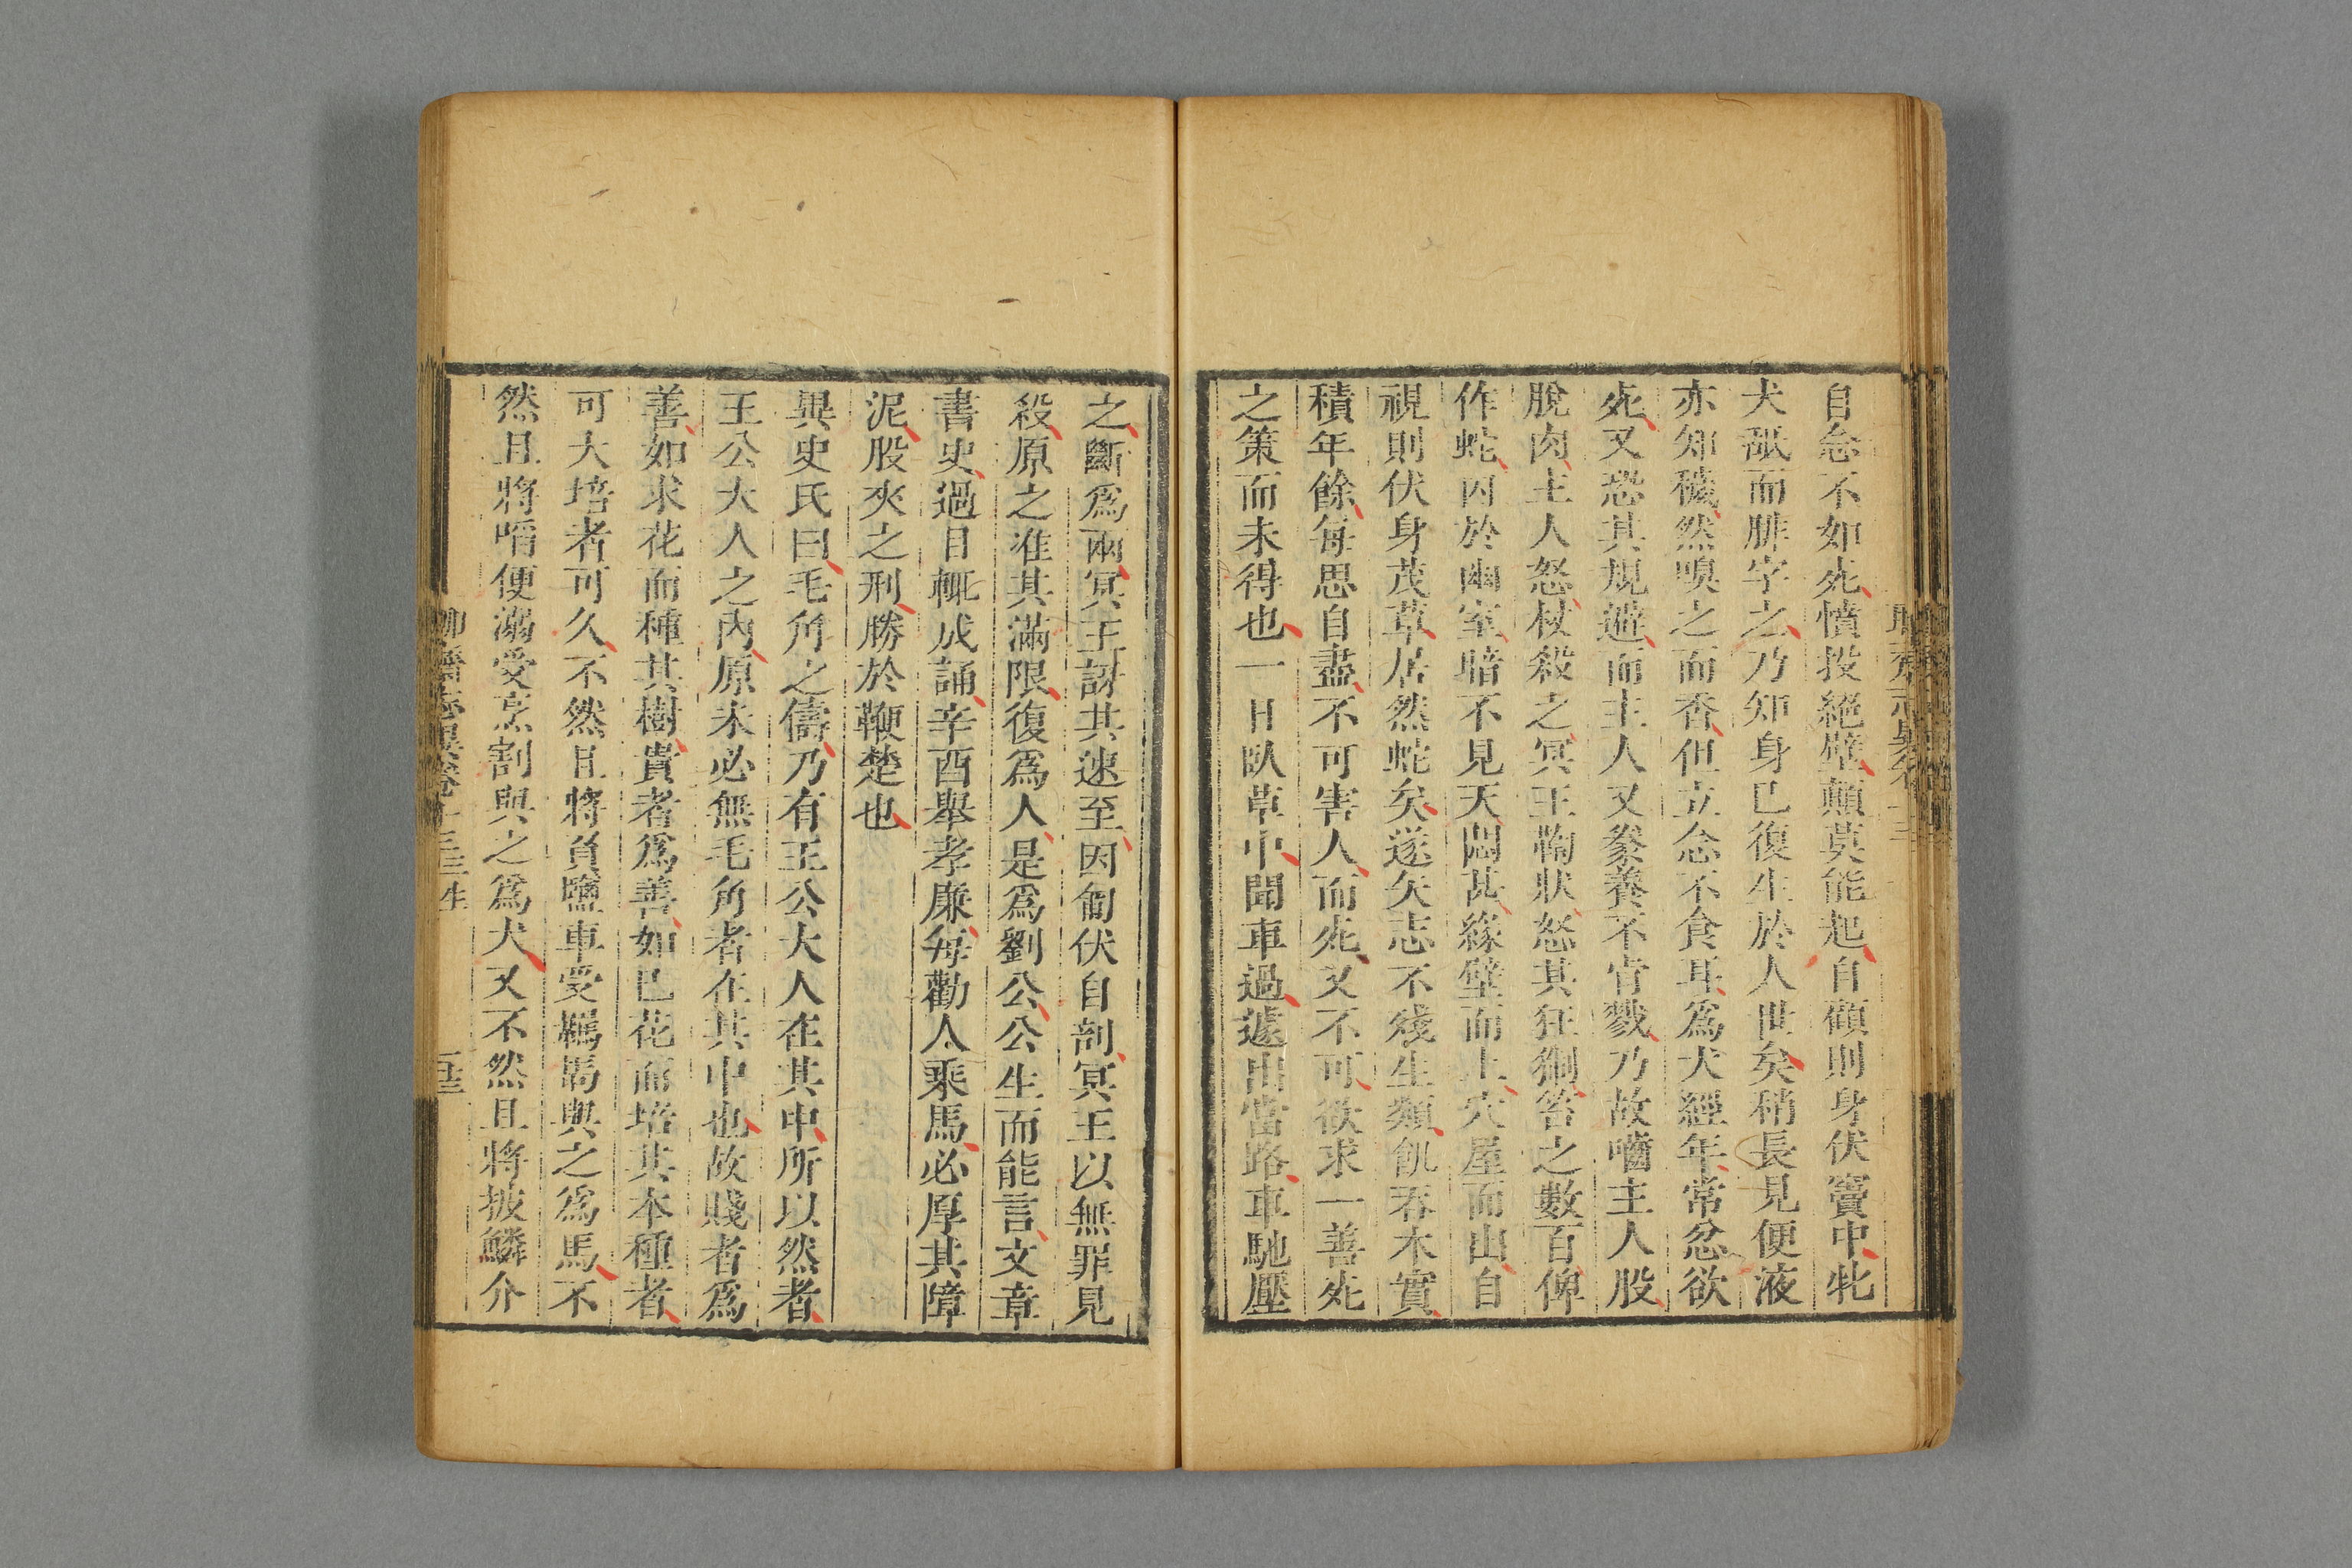 自念不如死憤投絕壁顛莫能起自顧則身伏竇中牝
犬舐而腓字之乃知身已復生於人世矣稍長見便液
亦知穢然嗅之而香但立念不食耳爲犬經年常忿欲
死又恐其規避而主人又豢養不肯戮乃故嚙主人股
脫肉主人怒杖殺之冥王鞫狀怒其狂猘笞之數百俾
作蛇囚於幽室暗不見天悶甚緣壁而上穴屋而出自
視則伏身茂草居然蛇矣遂矢志不殘生類飢吞木實
積年餘每思自盡不可害人而死又不可欲求一善死
之策而未得也一日臥草中聞車過遽出當路車馳壓
之斷爲兩冥王訝其速至因匍伏自剖冥王以無罪見
殺原之准其滿限復爲人是爲劉公公生而能言文章
書史過目輒成誦辛酉舉孝廉每勸人乘馬必厚其障
泥股夾之刑勝於鞭楚也
異史氏曰毛角之儔乃有王公大人在其中所以然者
王公大人之內原未必無毛角者在其中也故賤者爲
善如求花而種其樹貴者爲善如已花而培其本種者
可大培者可久不然且將負鹽車受羈馽與之爲馬不
然且將啗便溺受烹割與之爲犬又不然且將披鱗介
聊齋志異卷十三 三生